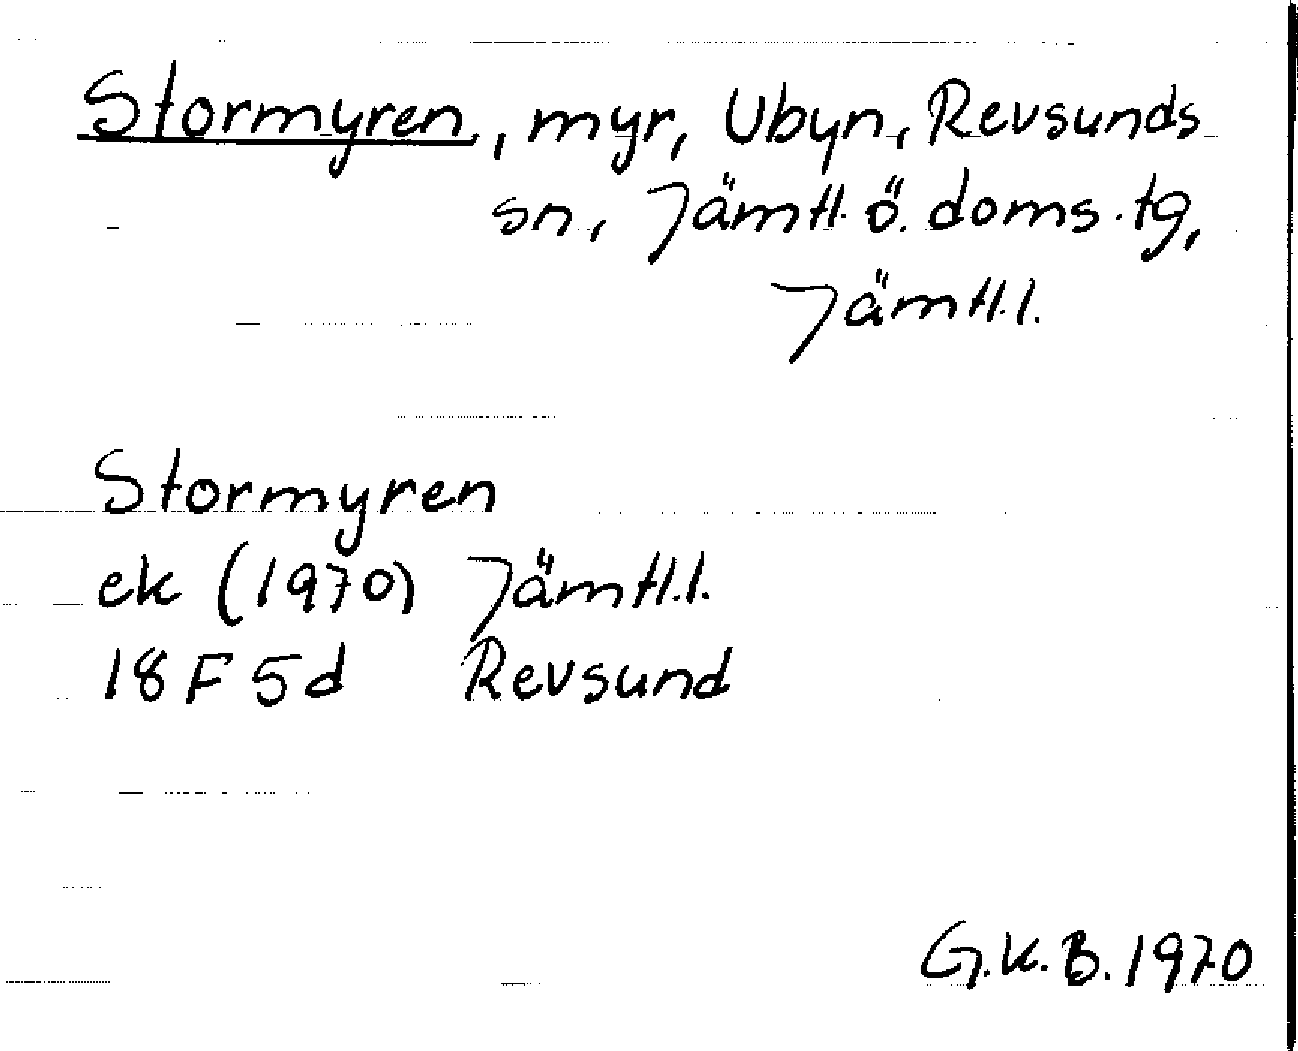 Stormyren, myr, Ubyn, Revsunds
sn, Jämtl. ö. doms. tg,
Jämtl. l.
Stormyren
ek (1970) Jämtl. l.
18 F 5d Revsund
G.K.B. 1970